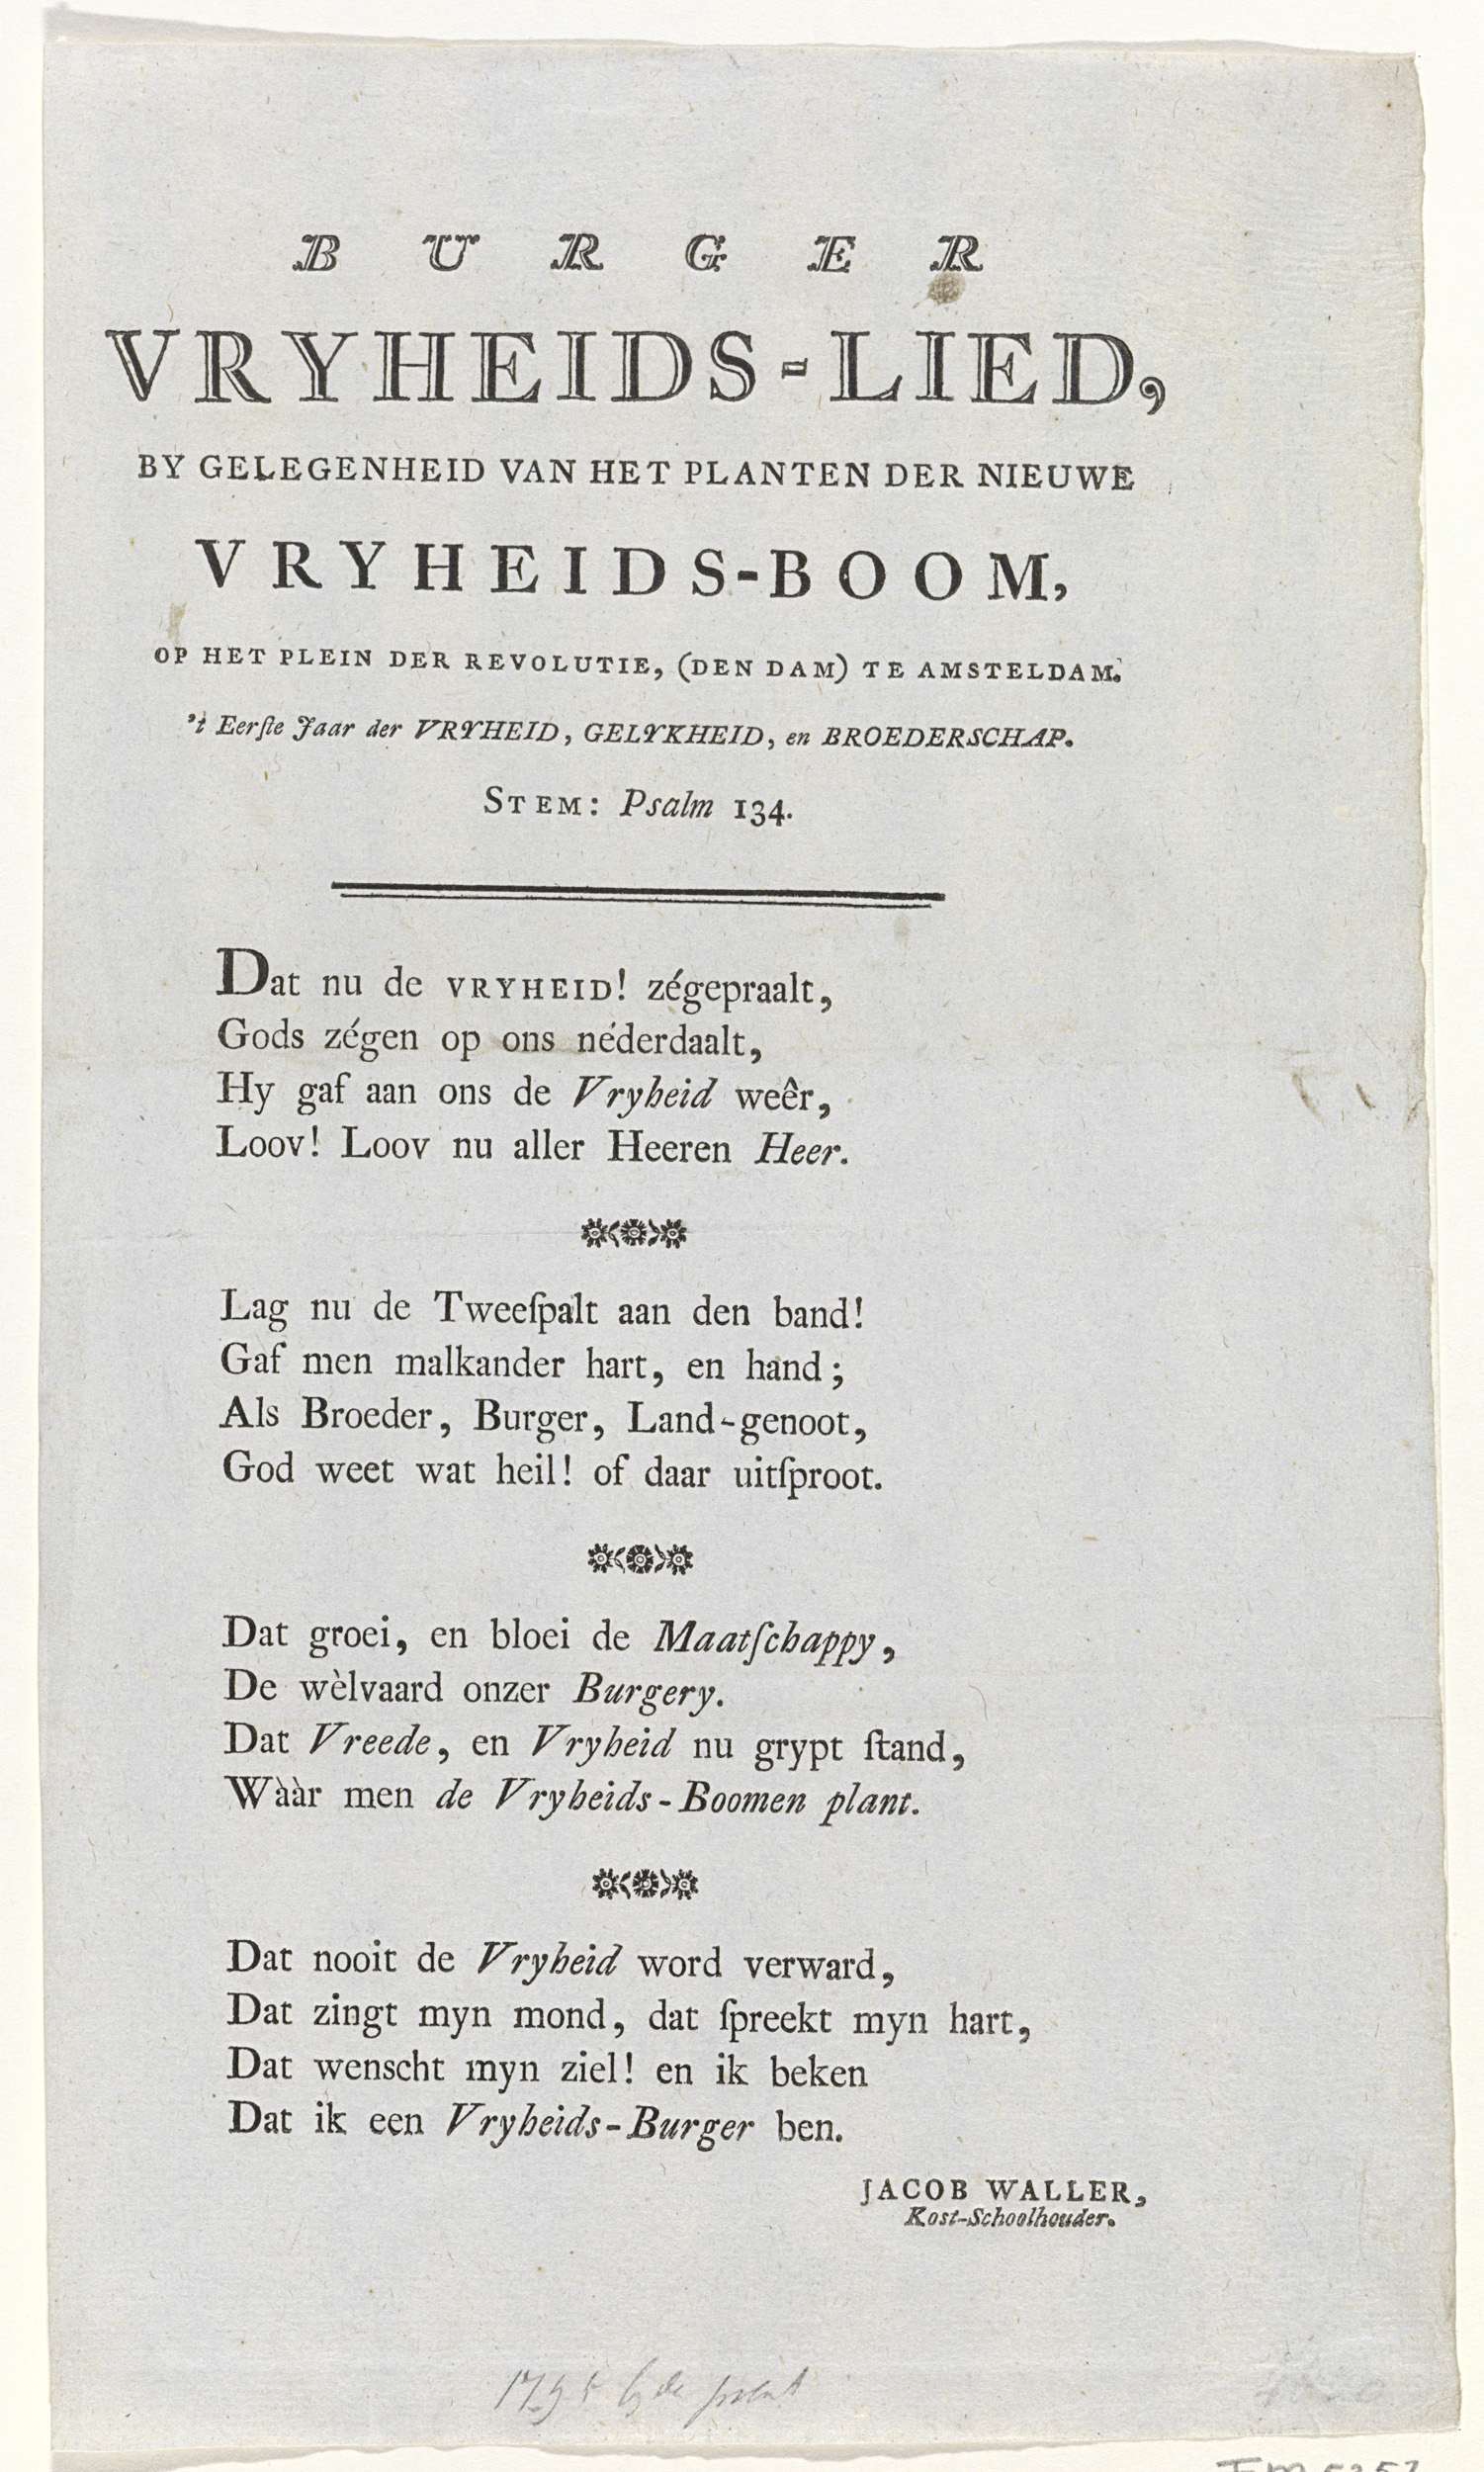 BURGER
VRYHEIDS-LIED,
BY GELEGENHEID VAN HET PLANTEN DER NIEUWE
VRYHEIDS-BOOM,
OP HET PLEIN DER REVOLUTIE, (DEN DAM) TE AMSTELDAM.
't Eerſte Jaar der VRYHEID, GELYKHEID, en BROEDERSCHAP.
STEM: Psalm 134.
Dat nu de VRYHEID! zégepraalt,
Gods zégen op ons néderdaalt,
Hy gaf aan ons de Vryheid weêr,
Loov! Loov nu aller Heeren Heer.
Lag nu de Tweeſpalt aan den band!
Gaf men malkander hart, en hand;
Als Broeder, Burger, Land-genoot,
God weet wat heil! of daar uitſproot.
Dat groei, en bloei de Maatſchappy,
De wèlvaard onzer Burgery.
Dat Vreede, en Vryheid nu grypt ſtand,
Wààr men de Vryheids-Boomen plant.
Dat nooit de Vryheid word verward,
Dat zingt myn mond, dat ſpreekt myn hart,
Dat wenscht myn ziel! en ik beken
Dat ik een Vryheids-Burger ben.
JACOB WALLER,
Kost-Schoolhouder.
1795 by de prent